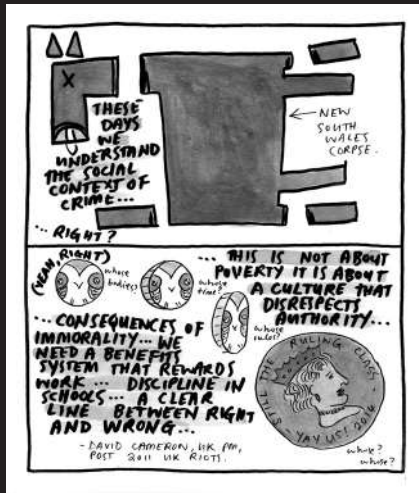 THESE
DAYS
WE
UNDERSTAND
THE SOCIAL
CONTEXT OF
CRIME...
... RIGHT?
NEW
SOUTH
WALES
CORPSE.
(YEAH, RIGHT)
whose
bodies?
whose
time?
whose
rules?
... THIS IS NOT ABOUT
POVERTY IT IS ABOUT
A CULTURE THAT
DISRESPECTS
AUTHORITY...
... CONSEQUENCES OF
IMMORALITY... WE
NEED A BENEFITS
SYSTEM THAT REWARDS
WORK ... DISCIPLINE IN
SCHOOLS... A CLEAR
LINE BETWEEN RIGHT
AND WRONG...
- DAVID CAMERON, UK PM,
POST 2011 UK RIOTS.
STILL THE RULING CLASS -
YAY US! 2014
whose?